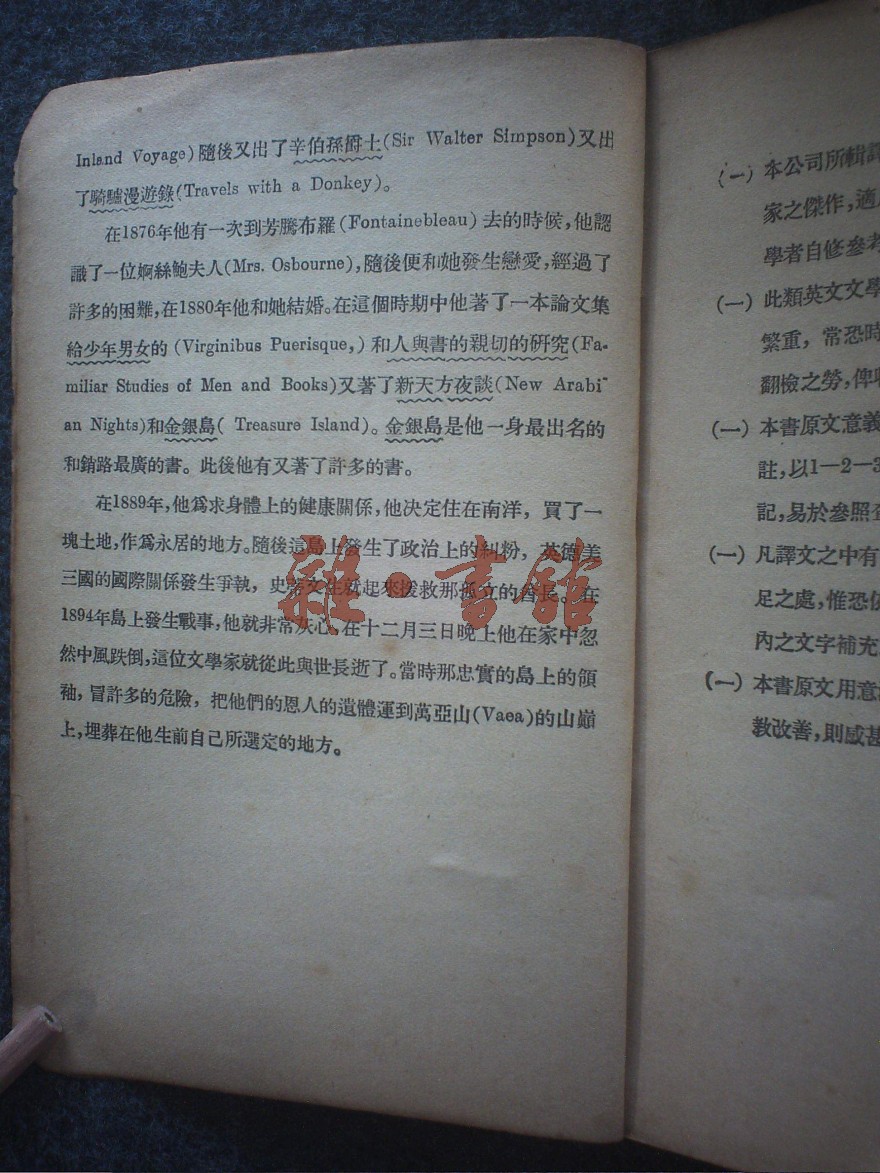 Inland Voyage)隨後又出了辛伯孫爵士(Sir Walter Simpson)又出
了騎驢漫遊錄(Travels with a Donkey)。
在1876年他有一次到芳騰布羅(Fontainebleau)去的時候,他認
識了一位婀絲鮑夫人(Mrs. Osbourne),隨後便和她發生戀愛,經過了
許多的困難,在1880年他和她結婚。在這個時期中他著了一本論文集
給少年男女的(Virginibus Puerisque,)和人與書的親切的研究(Fa-
miliar Studies of Men and Books)又著了新天方夜談(New Arabi-
an Nights)和金銀島( Treasure Island)。金銀島是他一身最出名的
和銷路最廣的書。此後他有又著了許多的書。
在1889年,他爲求身體上的健康關係,他決定住在南洋,買了一
塊土地,作爲永居的地方。隨後這島上發生了政治上的糾粉,英德美
三國的國際關係發生爭執,史蒂文生就起來援救那孤立的酋長。在
1894年島上發生戰事,他就非常灰心,在十二月三日晚上他在家中忽
然中風跌倒,這位文學家就從此與世長逝了。當時那忠實的島上的領
袖,冒許多的危險,把他們的恩人的遺體運到萬亞山(Vaea)的山巔
上,埋葬在他生前自己所選定的地方。
雜·書館
(一)本公司所輯譯
家之傑作,適
學者自修參考
(一)此類英文文學
繁重,常恐時
翻檢之勞,俾
(一)本書原文意義
註,以1—2—3
記,易於參照
(一)凡譯文之中有
足之處,惟恐
內之文字補充
(一)本書原文用意
教改善,則感甚